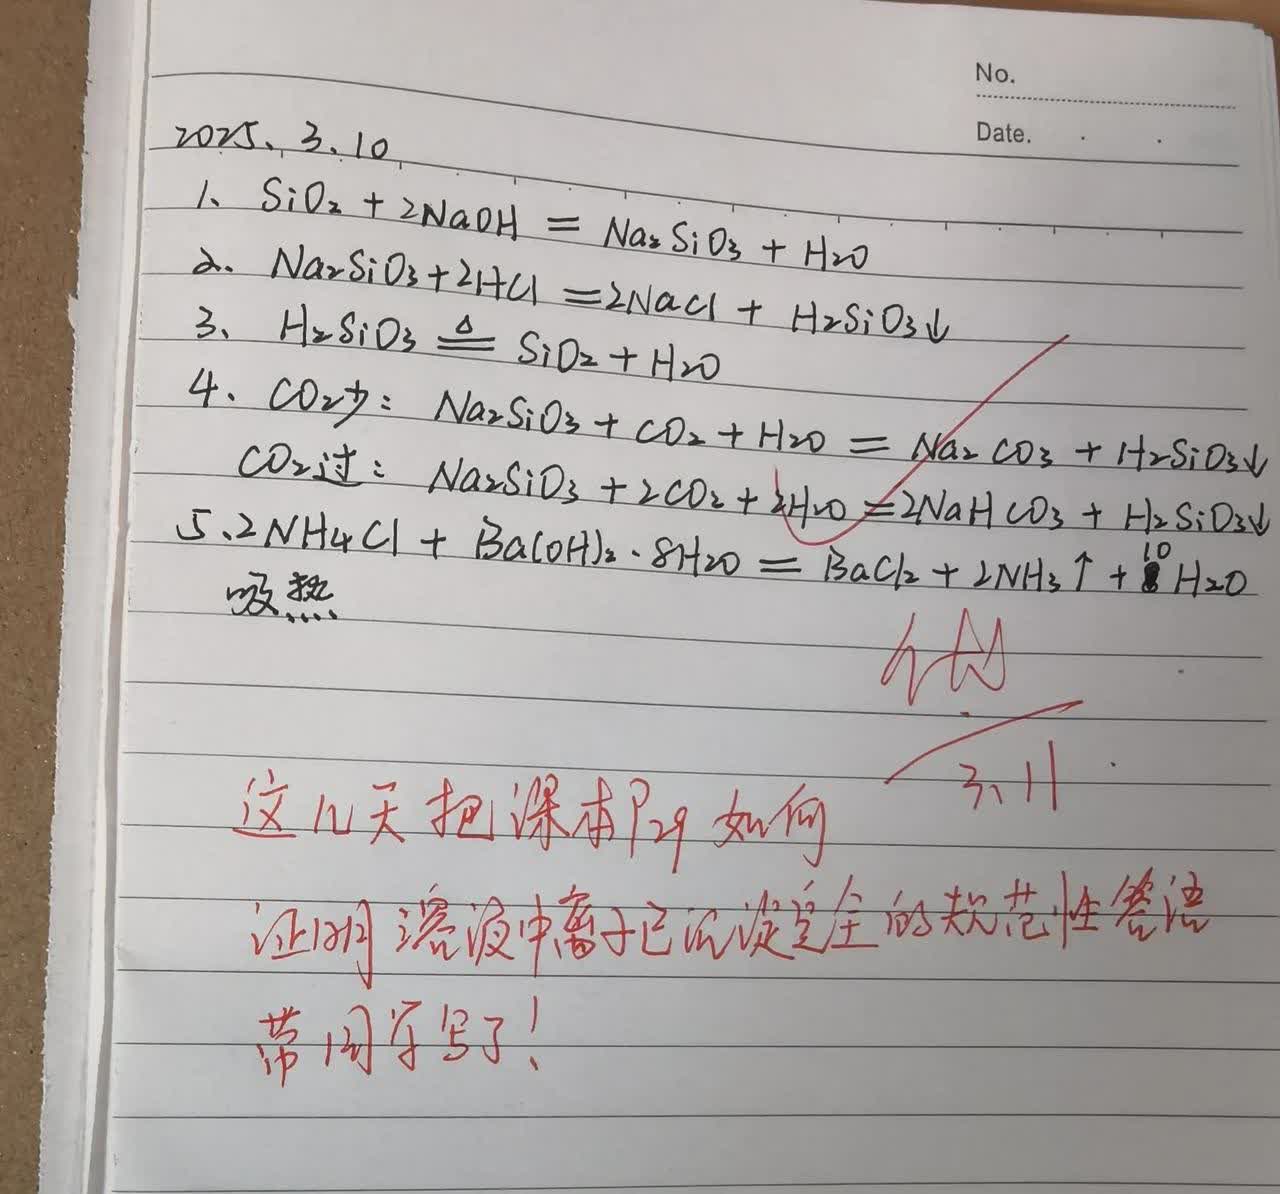 No.
Date.
2025.3.10
1. SiO₂ + 2NaOH = Na₂SiO₃ + H₂O
2. Na₂SiO₃ + 2HCl = 2NaCl + H₂SiO₃↓
3. H₂SiO₃ ≜ SiO₂ + H₂O
4. CO₂少: Na₂SiO₃ + CO₂ + H₂O = Na₂CO₃ + H₂SiO₃↓
CO₂过: Na₂SiO₃ + 2CO₂ + 2H₂O = 2NaHCO₃ + H₂SiO₃↓
5. 2NH₄Cl + Ba(OH)₂·8H₂O = BaCl₂ + 2NH₃↑ + 10H₂O
吸热
3.11
这几天把课本P29如何
证明溶液中离子已沉淀完全的规范性答语
带同学写了!